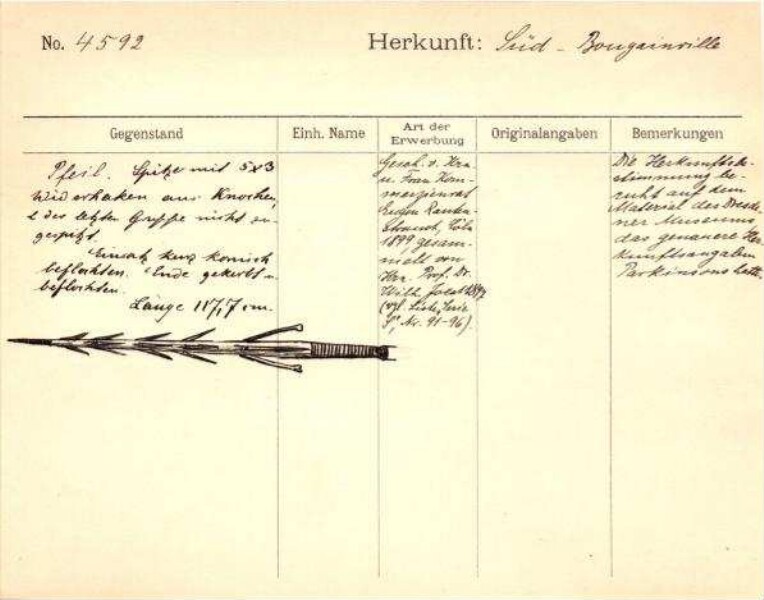 No. 4592
Herkunft: Süd - Bougainville
Gegenstand
Einh. Name
Art der
Erwerbung
Originalangaben
Bemerkungen
Pfeil. Spitze mit 5x3
Widerhaken aus Knochen,
2 der letzten Gruppe nicht zu-
gespitzt.
Einsatz kurz konisch
beflochten. Ende gekerbt u.
beflochten.
Länge 117,7 cm.
Gesch. v. Hrn.
u. Frau Kom-
merzienrat
Eugen Rauten-
strauch, Cöln
1899 gesam-
melt von
Hrn. Prof. Dr.
Wilh. Joest 1897
(vgl. Liste, Serie
S, Nr. 91-96)
Die Herkunftsbe-
stimmung be-
ruht auf dem
Material des Dresde-
ner Museums
das genauere Her-
kunftsangaben
Parkinsons hatte.